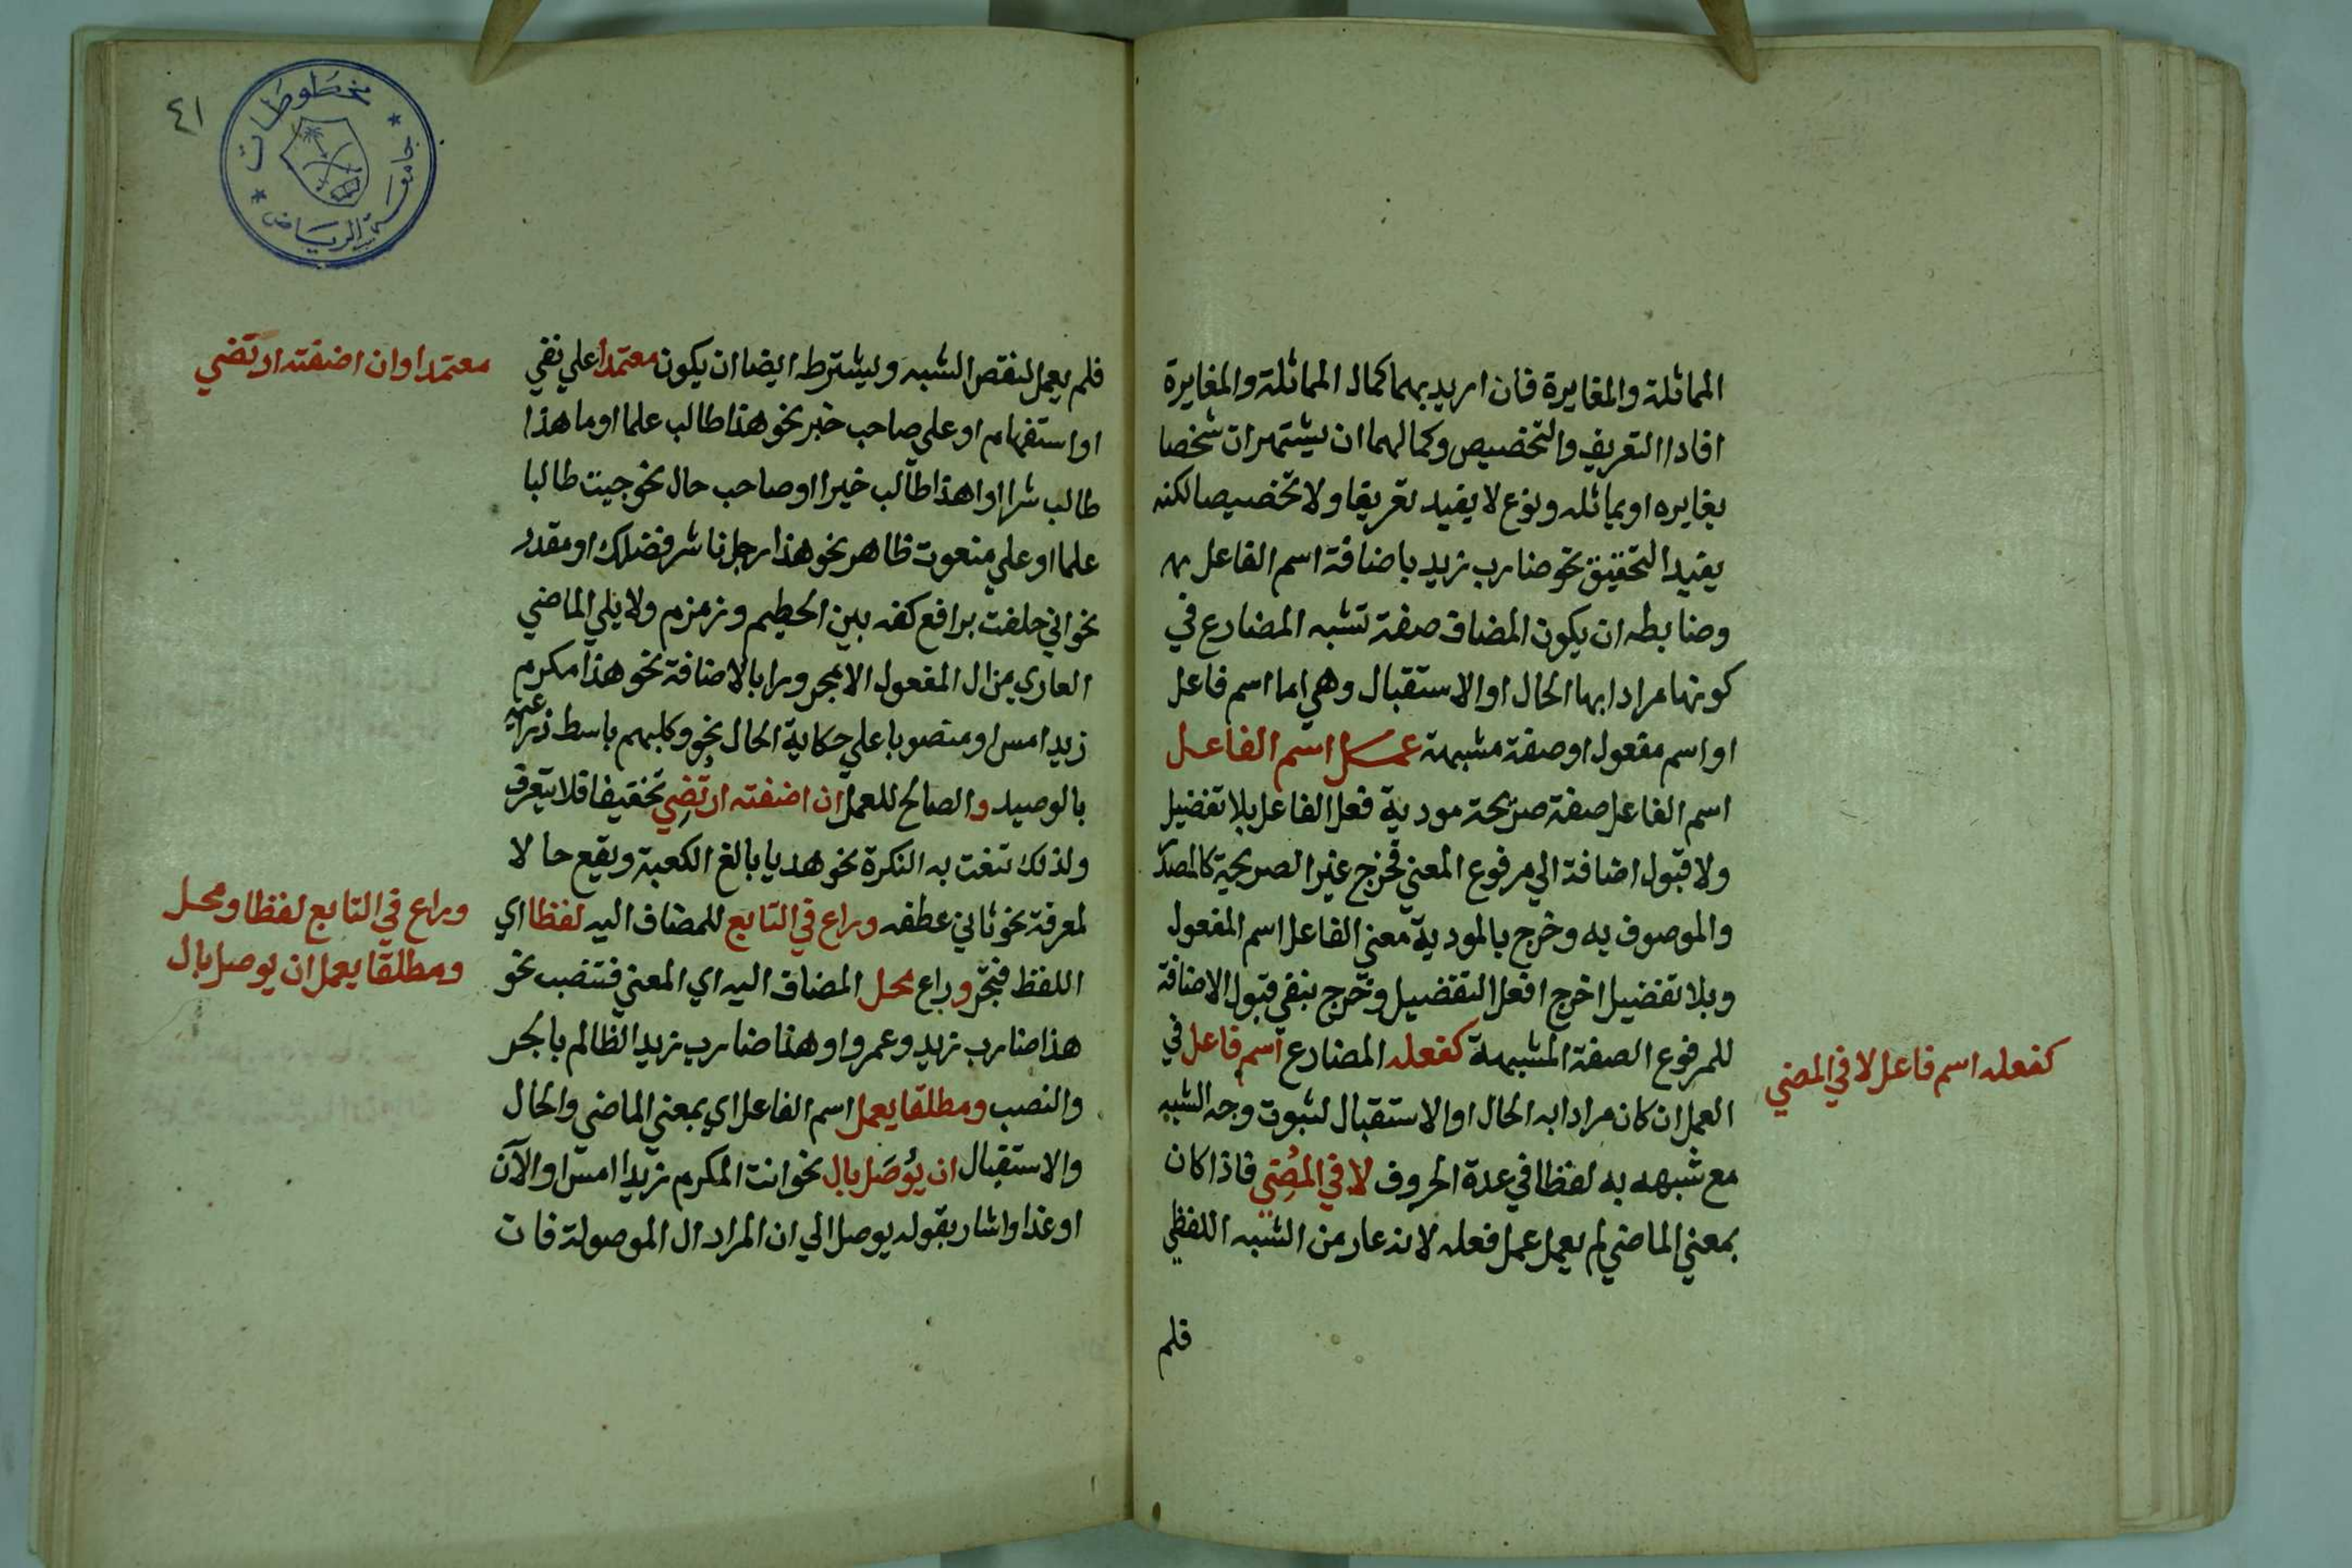 المماثلة والمغايرة فان اريد بهما كمال المماثلة والمغايرة
افادا التعريف والتخصيص وكمالهما ان يشتهر ان شخصا
يغايره او يماثله ونوع لا يفيد تعريفا ولا تخصيصا لكنه
يفيد التحقيق نحو ضارب زيد باضافة اسم الفاعل به
وضابطه ان يكون المضاف صفة تشبه المضارع في
كونها مرادا بها الحال او الاستقبال وهي اما اسم فاعل
او اسم مفعول او صفة مشبهة عمل اسم الفاعل
اسم الفاعل صفة صريحة مودية فعل الفاعل بلا تفضيل
ولا قبول اضافة الي مرفوع المعني فخرج غير الصريحية كالمصدر
والموصوف به وخرج بالمودية معني الفاعل اسم المفعول
وبلا تفضيل اخرج افعل التفضيل وخرج بنفي قبول الاضافة
للمرفوع الصفة المشبهة كفعله المضارع اسم فاعل في
العمل ان كان مرادا به الحال او الاستقبال لثبوت وجه الشبه
مع شبهه به لفظا في عدة الحروف لا في المضي فاذا كان
بمعني الماضي لم يعمل عمل فعله لانه عار من الشبه اللفظي
فلم
كفعله اسم فاعل لا في المضي
٤١
مخطوطات
جامعة الرياض
فلم يعمل لنقص الشبه ويشترط ايضا ان يكون معتمدا علي نفي
او استفهام او علي صاحب خبر نحو هذا طالب علما او ما هذا
طالب شرا او اهذا طالب خيرا او صاحب حال نحو جيت طالبا
علما او علي منعوت ظاهر نحو هذا رجل ناشر فضلك او مقدر
نحو اني حلفت برافع كفه بين الحطيم وزمزم ولا يلي الماضي
العاري من ال المفعول الا مجرورا بالاضافة نحو هذا مكرم
زيد امس او منصوبا علي حكاية الحال نحو وكلبهم باسط ذراعيه
بالوصيد والصالح للعمل ان اضفته ارتضي تخفيفا فلا يتعرف
ولذلك تنعت به النكرة نحو هديا بالغ الكعبة ويقع حالا
لمعرفة نحو ثاني عطفه وراع في التابع للمضاف اليه لفظا اي
اللفظ فتجر وراع محل المضاف اليه اي المعني فتنصب نحو
هذا ضارب زيد وعمرو او هذا ضارب زيد الظالم بالجر
والنصب ومطلقا يعمل اسم الفاعل اي بمعني الماضي والحال
والاستقبال ان يُوصَل بال نحو انت المكرم زيدا امس او الآن
او غدا واشار بقوله يوصل الي ان المراد ال الموصولة فان
معتمدا وان اضفته ارتضي
وراع في التابع لفظا ومحل
ومطلقا يعمل ان يوصل بال